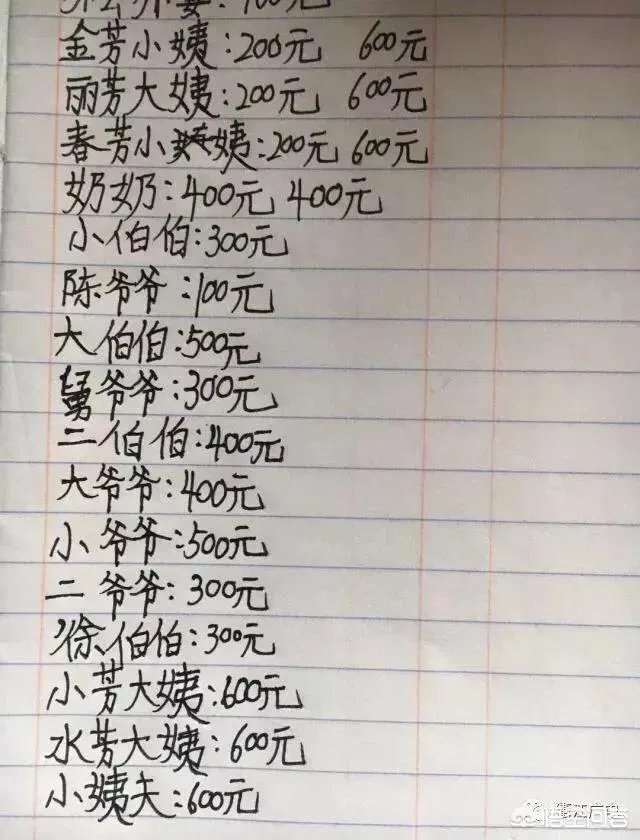 金芳小姨:200元 600元
丽芳大姨:200元 600元
春芳小姨:200元 600元
奶奶:400元 400元
小伯伯:300元
陈爷爷:100元
大伯伯:500元
舅爷爷:300元
二伯伯:400元
大爷爷:400元
小爷爷:500元
二爷爷:300元
徐伯伯:300元
小芳大姨:600元
水芳大姨:600元
小姨夫:600元
悟空问答